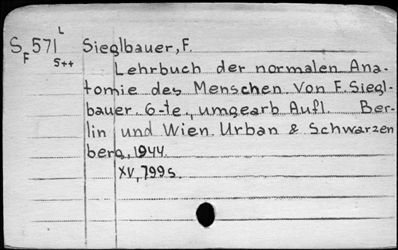 S 571 L Sieglbauer, F.
F 5++
Lehrbuch der normalen Ana-
tomie des Menschen. Von F. Siegl-
bauer. 6-te, umgearb. Aufl. Ber-
lin und Wien. Urban & Schwarzen
berg, 1944.
XV, 799 s.